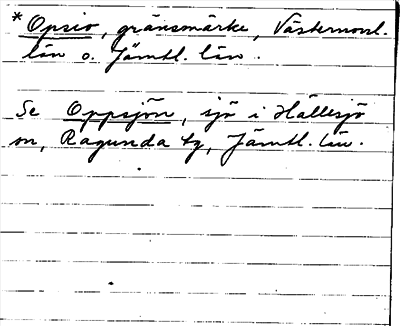 * Opsio, gränsmärke, Västernorrl.
län o. Jämtl. län.
Se Oppsjön, sjö i Hällesjö
sn, Ragunda tg, Jämtl. län.